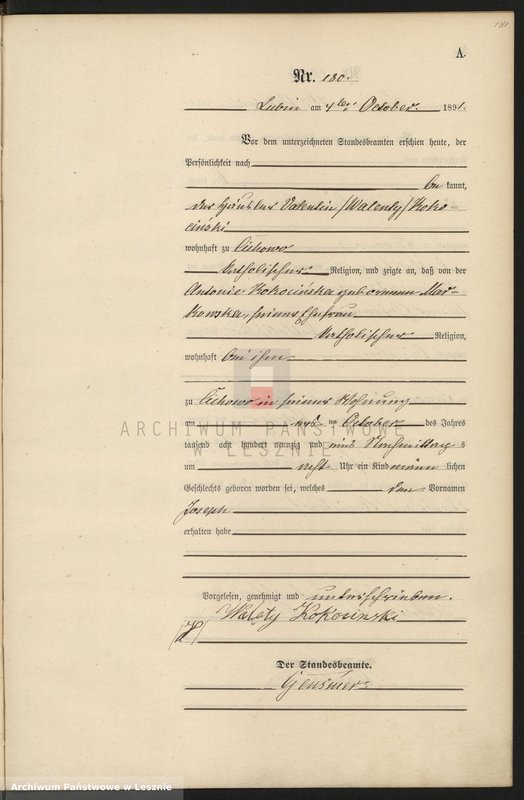 181.
A.
Nr. 180.
Lubin am 4ten October 1891.
Vor dem unterzeichneten Standesbeamten erschien heute, der
Persönlichkeit nach
be kannt,
der Häusler Valentin /Walenty/ Koko-
ciński
wohnhaft zu Cichowo
katholischer Religion, und zeigte an, daß von der
Antonie Kokocińska geborenen Mar-
kowska, seiner Ehefrau
katholischer Religion,
wohnhaft bei ihm
zu Cichowo in seiner Wohnung
am ten October des Jahres
tausend acht hundert neunzig und eins Nachmittag s
um acht Uhr ein Kind männ lichen
Geschlechts geboren worden sei, welches den Vornamen
Joseph
erhalten habe
Vorgelesen, genehmigt und unterschrieben.
Walęty Kokocinzki
Der Standesbeamte.
ARCHIWUM PAŃSTWOWE
W LESZNIE
Archiwum Państwowe w Lesznie